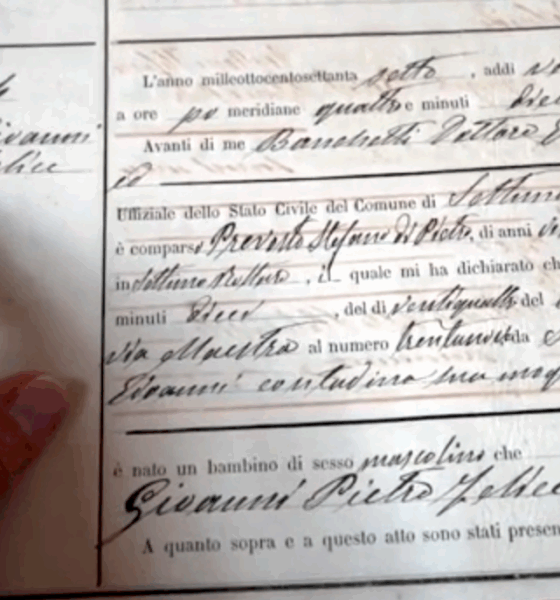 Giovanni
Felice
L'anno milleottocentosettanta sette, addi
a ore po meridiane quattro e minuti dieci
Avanti di me Banchetti Dottore
ed
Uffiziale dello Stato Civile del Comune di Settimo
è comparso Prevosto Stefano di Pietro, di anni
in Settimo Rottaro, il quale mi ha dichiarato ch
minuti dieci, del dì ventiquattro del
via Maestra al numero trentanove da
Giovanni contadina sua mog
è nato un bambino di sesso mascolino che
Giovanni Pietro Felice
A quanto sopra e a questo atto sono stati presen